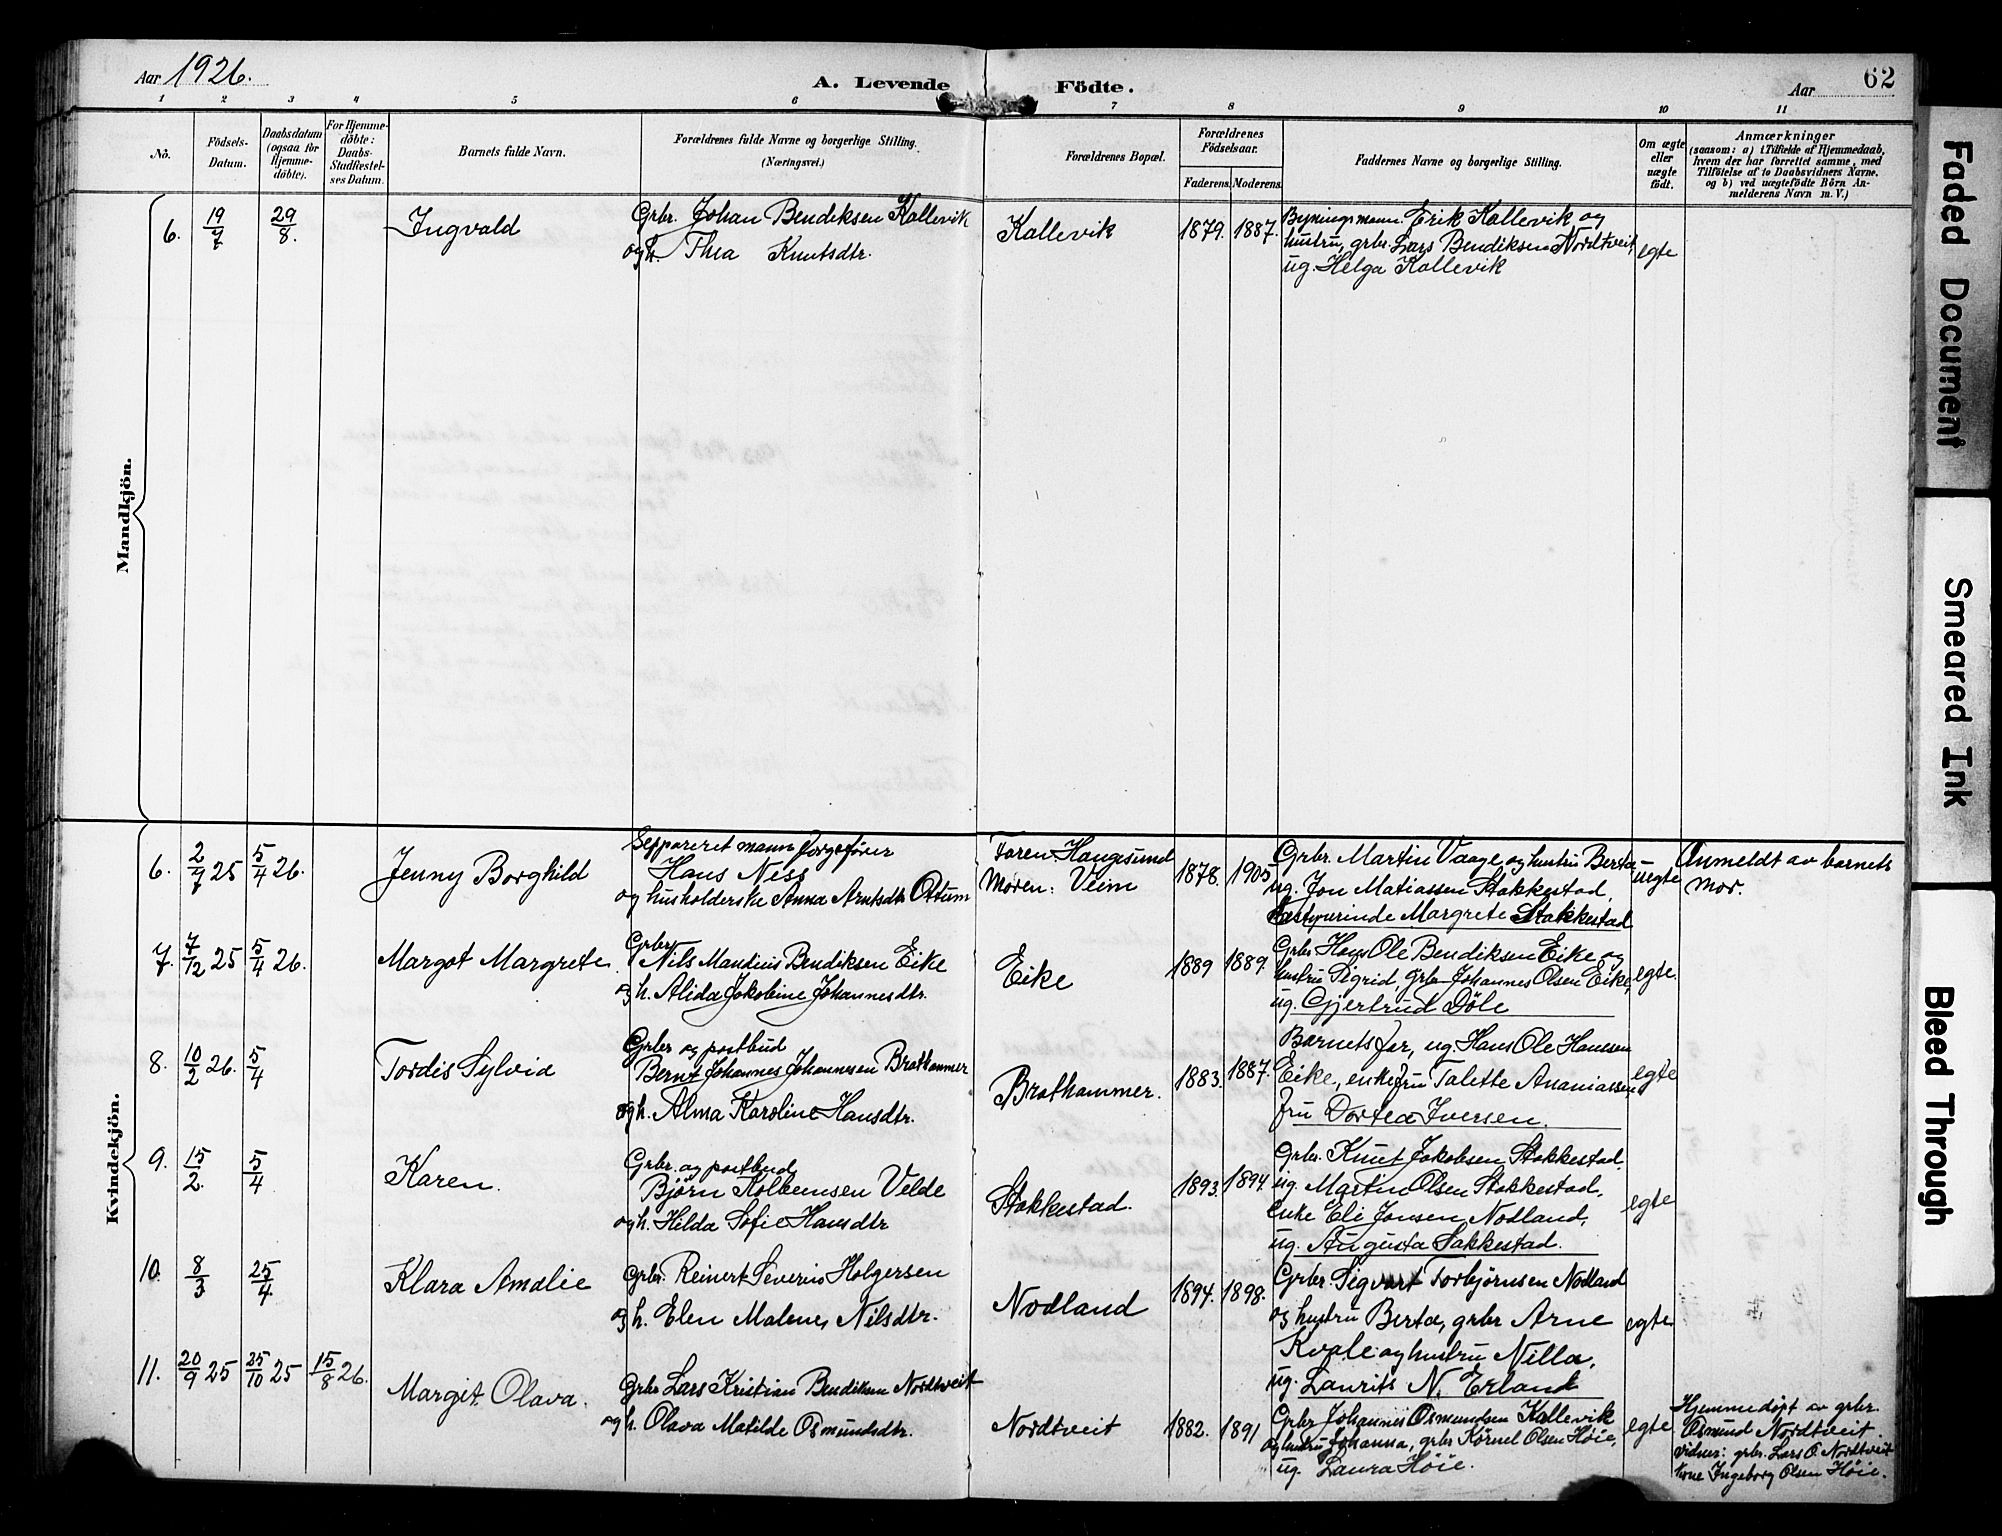 Aar 1926.
A. Levende Födte.
Aar
62
1 2 3 4 5 6 7 8 9 10 11
Nô.
Födsels-Datum.
Daabsdatum (ogsaa för Hjemme-döbte).
For Hjemme-döbte: Daabs-Stadfæstel-ses Datum.
Barnets fulde Navn.
Forældrenes fulde Navne og borgerlige Stilling. (Næringsvei.)
Forældrenes Bopæl.
Forældrenes Födselsaar.
Faderens. Moderens.
Faddernes Navne og borgerlige Stilling.
Om ægte eller uægte födt.
Anmærkninger
(saasom: a) i Tilfælde af Hjemmedaab,
hvem der har forrettet samme, med
Tilföielse af to Daabsvidners Navne,
og b) ved uægtefödte Börn An-
melderens Navn m. V.)
Mandkjön.
6. 19/7 29/8. Ingvald
Grbr. Johan Bendiksen Kallevik
og h. Thea Knutsdtr.
Kallevik 1879. 1887.
Bygningsmann Erik Kallevik og
hustru, grbr. Lars Bendiksen Nordtveit,
ug. Helga Kallevik
egte
Kvindekjön.
6. 2/7 25 5/4 26. Jenny Borghild
Seppareret mann forgefører
Hans Ness
og husholderske Anna Arntsdtr Ottum
Faren: Haugesund
Moren: Veim
1878. 1905
Grbr. Martin Vaage og hustru Berta
ug. Jon Matiassen Stakkestad,
bestyrerinde Margrete Stakkestad
uegte
Anmeldt av barnets
mor.
7. 7/12 25 5/4 26. Margot Margrete
Grbr.
Nils Mandius Bendiksen Eike
og h. Alida Jakobine Johannesdtr.
Eike 1889 1889.
Grbr. Hans Ole Bendiksen Eike og
hustru Sigrid, grbr Johannes Olsen Eike,
ug. Gjertrud Døle
egte
8. 10/2 26. 5/4 Tordis Sylvia
Grbr og postbud
Bernt Johannes Johannesen Brathammer
og h. Alma Karoline Hansdtr.
Brathammer. 1883. 1887.
Barnets far, ug. Hans Ole Hanssen
Eike, enkefru Talette Ananiassen,
fru Dortea Iversen.
egte
9. 15/2. 5/4 Karen.
Grbr. og postbud
Bjørn Kolbeinsen Velde
og h. Hilda Sofie Hansdtr
Stakkestad. 1893. 1894.
Grbr. Knut Jakobsen Stakkestad,
ug. Martin Olsen Stakkestad,
enke Eli Jonsen Nodland,
ug. Augusta Sakkestad.
egte
10. 8/3 25/4. Klara Amalie
Grbr. Reinert Severin Holgersen
og h. Elen Malene Nilsdtr.
Nodland 1894. 1898.
Grbr. Sigvart Torbjørnsen Nodland
og hustru Berta, grbr Arne
Kvale og hustru Nilla,
ug. Laurits N. Erland
egte
11. 20/9 25 25/10 25 15/8 26. Margit Olava.
Grbr Lars Kristian Bendiksen Nordtveit
og h. Olava Matilde Osmundsdtr.
Nordtveit 1882. 1891
Grbr Johannes Osmundsen Kallevik
og hustru Johanna, grbr Kornel Olsen Høie,
ug. Laura Høie.
egte
Hjemmedøpt av grbr.
Osmund Nordtveit.
vidner: grbr. Lars O Nordtveit
kone Ingeborg Olsen Høie.
Faded Document
Smeared Ink
Bleed Through